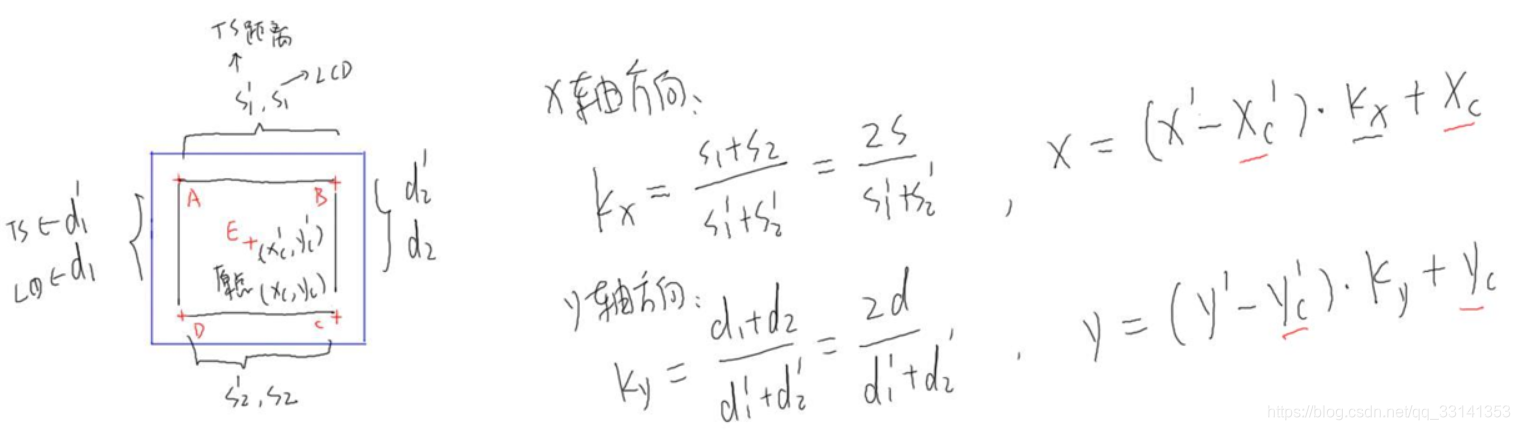 TS距离
s₁', s₁ → LCD
A B
E (x_c', y_c')
原点 (x_c, y_c)
D C
TS ← d₁'
LCD ← d₁
d₂'
d₂
s₂', s₂
X轴方向:
k_x = (s₁+s₂)/(s₁'+s₂') = 2s/(s₁'+s₂') , x = (x' - x_c') · k_x + x_c
y轴方向:
k_y = (d₁+d₂)/(d₁'+d₂') = 2d/(d₁'+d₂') , y = (y' - y_c') · k_y + y_c
https://blog.csdn.net/qq_33141353